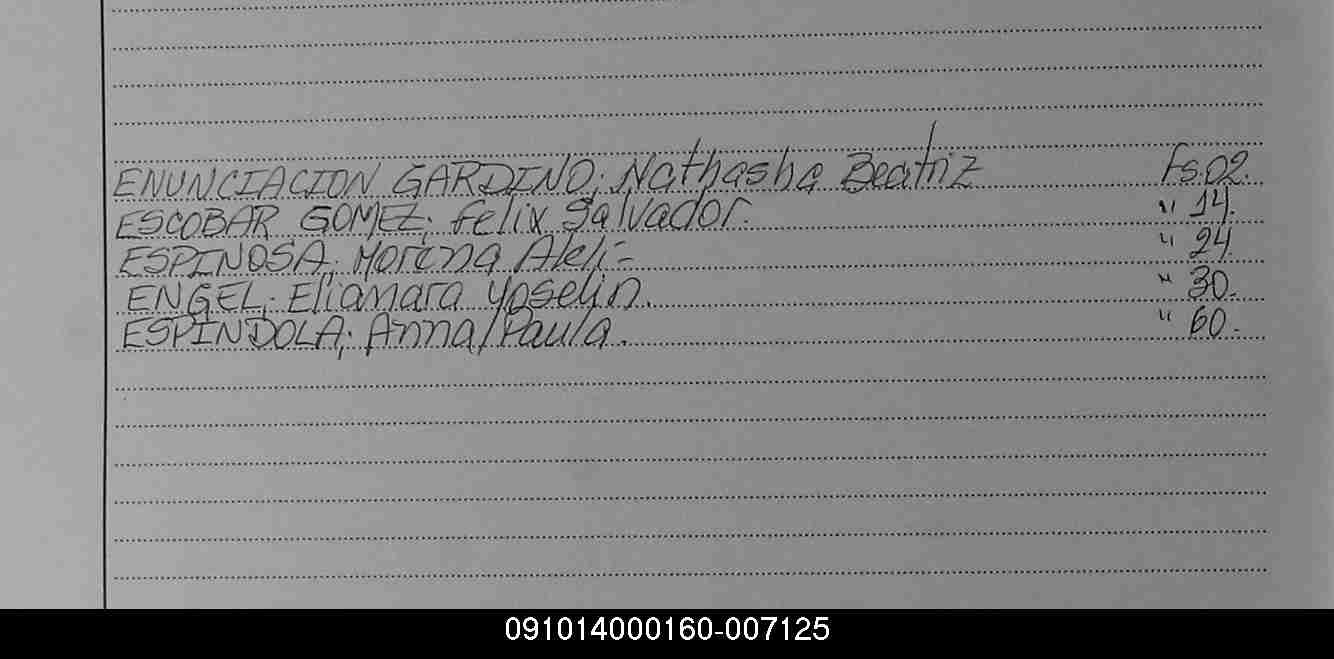 ENUNCIACION GARDINO; Nathasha Beatriz Fs.02.
ESCOBAR GOMEZ; Felix Salvador. " 14.
ESPINOSA; Morena Aleli- " 24
ENGEL; Eliamara Yoselin. " 30.
ESPINDOLA; Anna Paula. " 60.
091014000160-007125